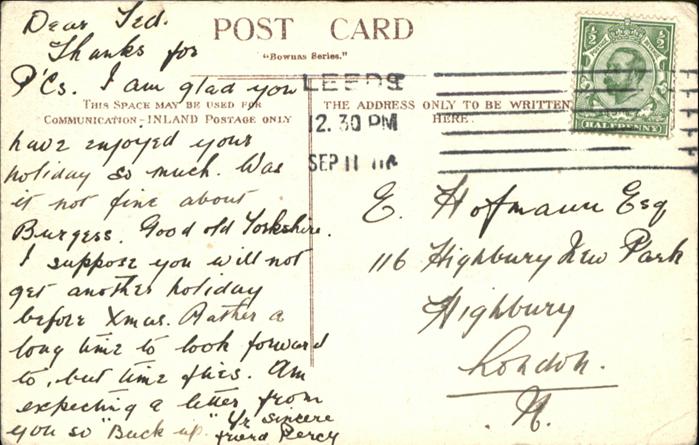 POST CARD
"Bownas Series."
THIS SPACE MAY BE USED FOR
COMMUNICATION - INLAND POSTAGE ONLY
THE ADDRESS ONLY TO BE WRITTEN
HERE.
LEEDS
12.30 PM
SEP 11
½ ½
HALFPENNY
Dear Ted.
Thanks for
P'Cs. I am glad you
have enjoyed your
holiday so much. Was
it not fine about
Burgess. Good old Yorkshire.
I suppose you will not
get another holiday
before Xmas. Rather a
long time to look forward
to, but time flies. Am
expecting a letter from
you so "Buck up."
Yr sincere
friend Percy
E. Hofmann Esq
116 Highbury New Park
Highbury
London.
N.